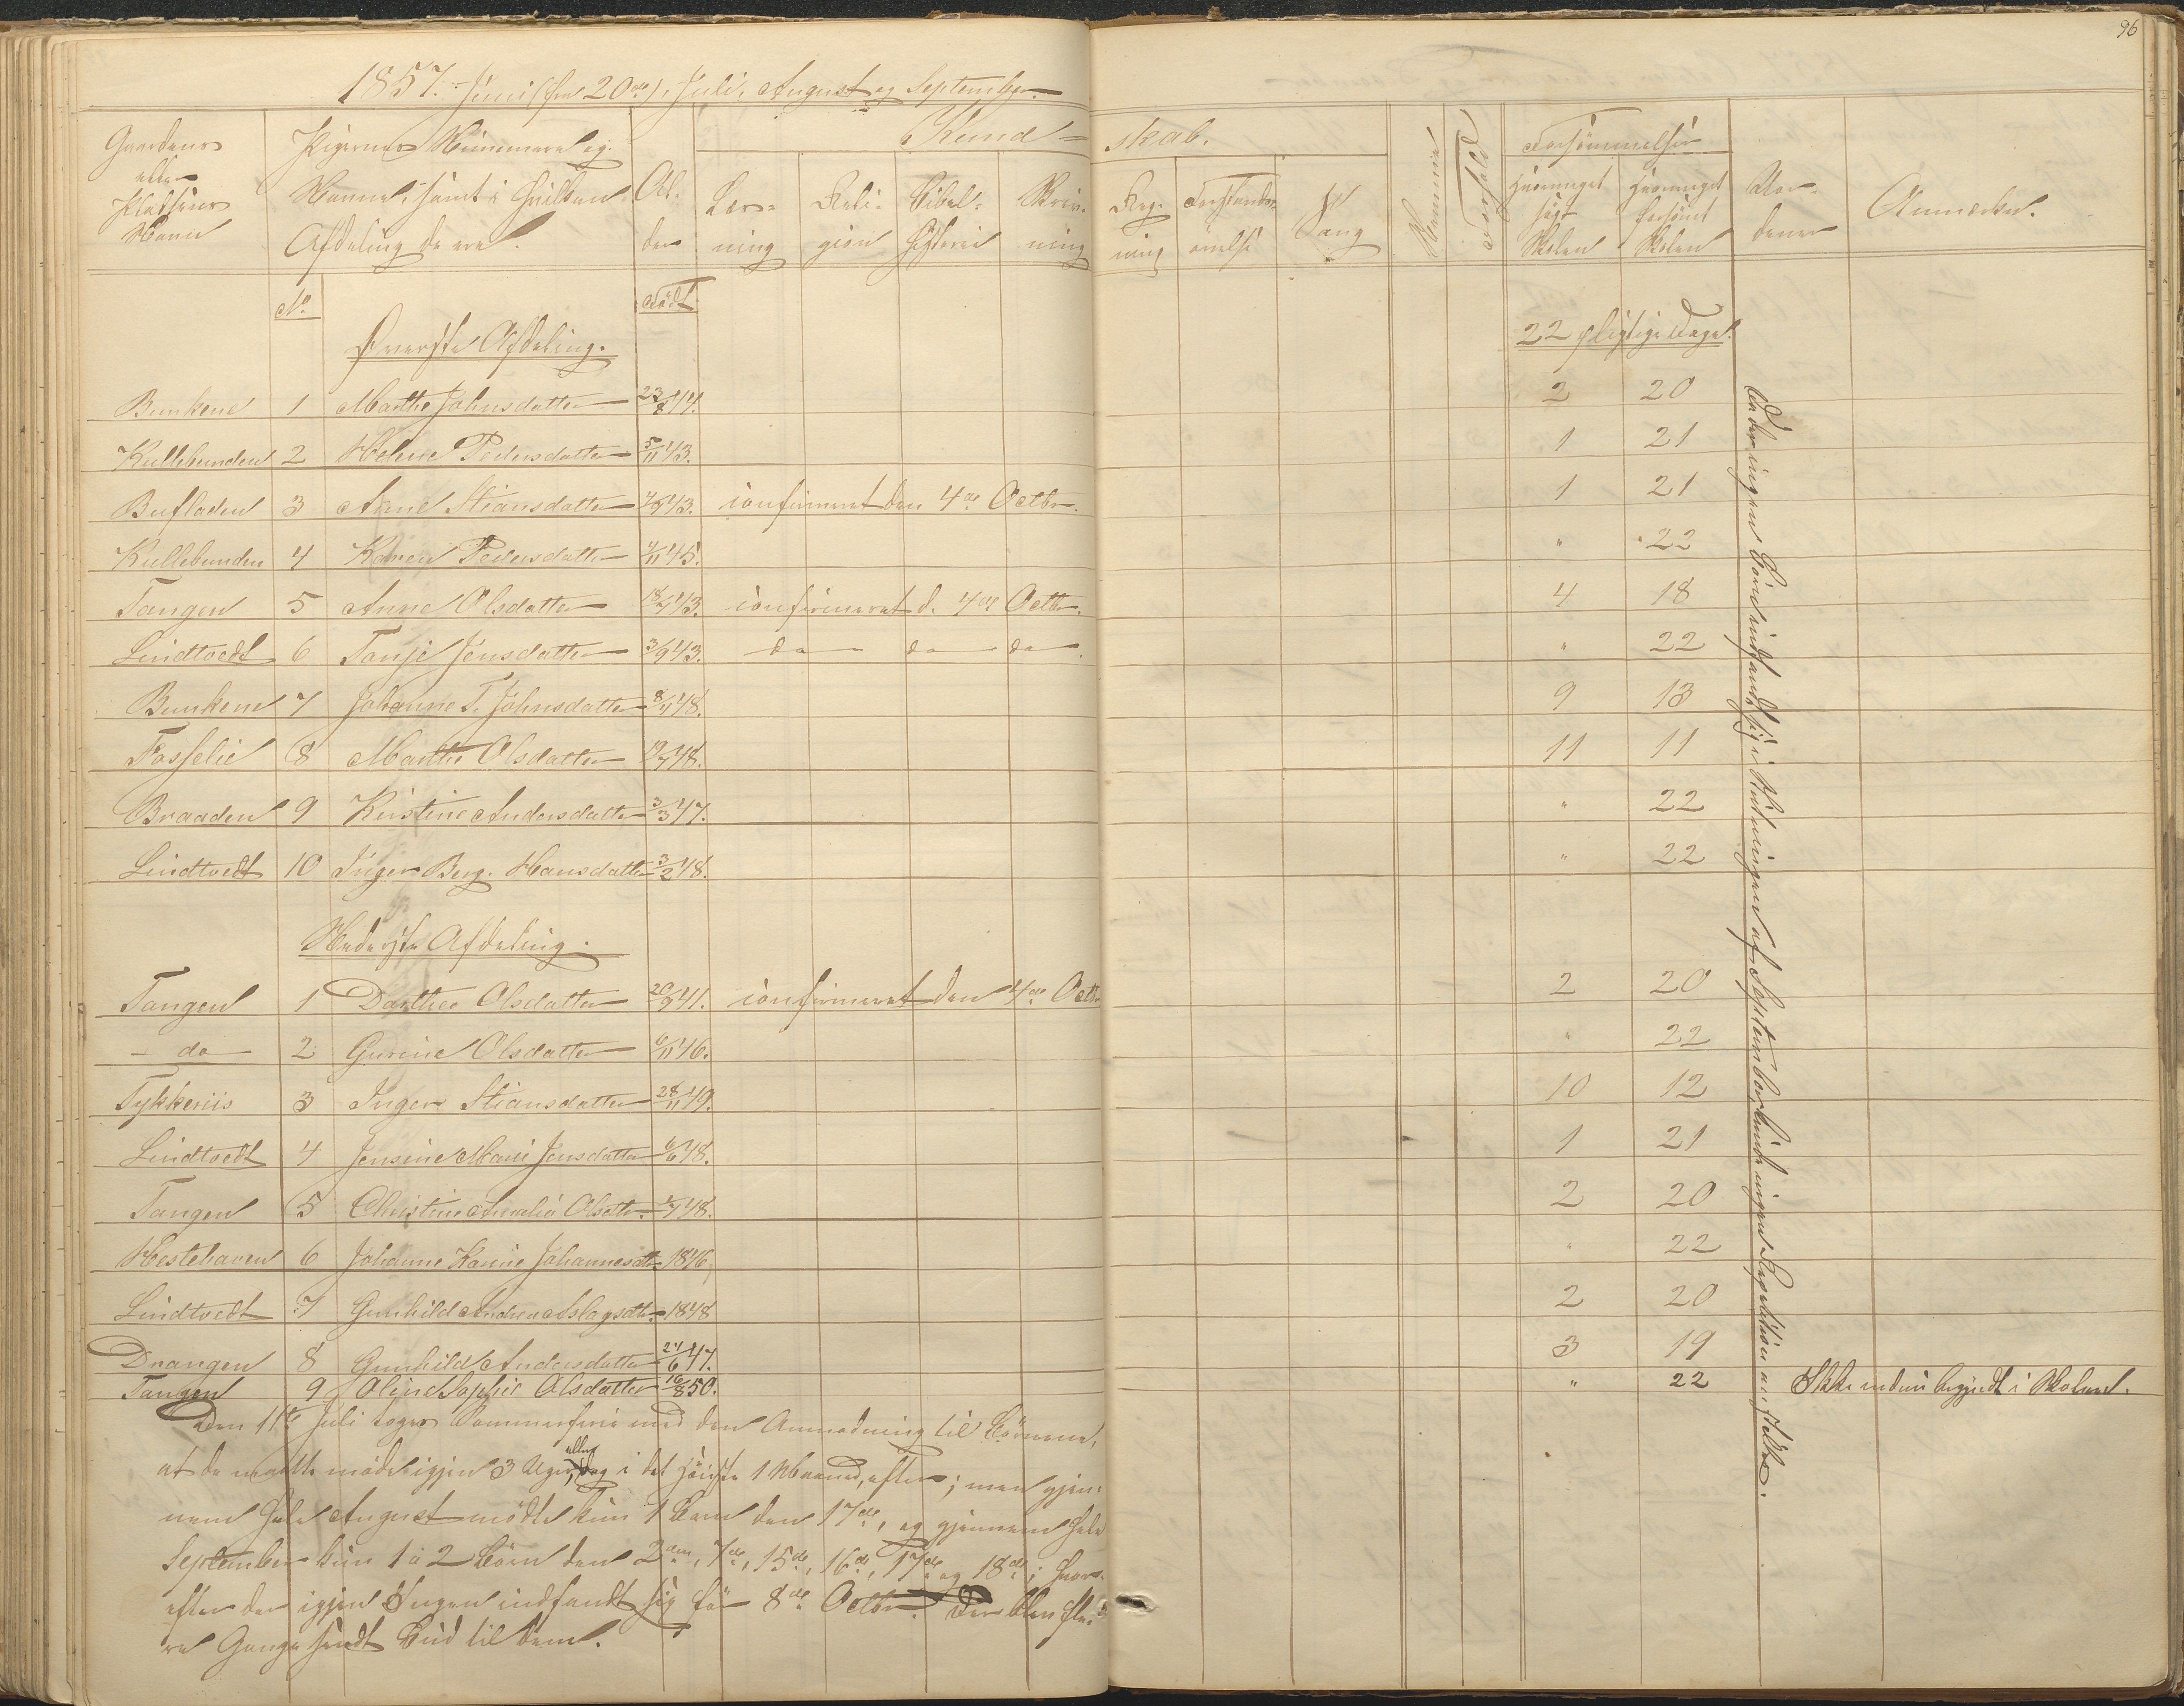 96
1857. Juni (fra 20de), Juli, August og September.
Gaardens eller Pladsens Navn
Pigernes Nummere og Navne, samt i hvilken Afdeling de ere.
Al-der
Kund-skab.
Læs-ning
Reli-gion
Bibel-historie
Skriv-ning
Reg-ning
Forstands-øvelse
Sang
Evne
Forsømmelser
Hvormeget søgt Skolen
Hvormeget forsømt Skolen
Kar
Anmærkn.
No
Født
Øverste Afdeling.
22 pligtige Dage.
Bunkene 1 Marthe Johnsdatter 23/8 44. 2 20
Kullebunden 2 Helene Pedersdatter 5/11 43. 1 21
Bufladen 3 Anne Stiansdatter 4/9 43. confirmeret den 4de Octbr. 1 21
Kullebunden 4 Karen Pedersdatter 4/11 45. " 22
Tangen 5 Anne Olsdatter 18/7 43. confirmeret d. 4de Octbr. 4 18
Lindtvedt 6 Tonje Jensdatter 3/9 43. do do do. " 22
Bunkene 7 Johanne T. Johnsdatter 8/4 48. 9 13
Fosselie 8 Marthe Olsdatter 19/7 48. 11 11
Braaden 9 Kirstine Andersdatter 3/3 47. " 22
Lindtvedt 10 Inger Berg. Hansdatter 3/2 48. " 22
Nederste Afdeling.
Tangen 1 Dorthea Olsdatter 20/9 41. confirmeret den 4de Octbr 2 20
do 2 Gurine Olsdatter 6/11 46. " 22
Tykkeriis 3 Inger Stiansdatter 28/11 49. 10 12
Lindtvedt 4 Jensine Marie Jensdatter 6/6 48. 1 21
Tangen 5 Christine Amalia Olsdtr. 1/7 48. 2 20
Hestehaven 6 Johanne Karine Johannesdtr. 1846. " 22
Lindtvedt 7 Gunhild Andrea Aslagsdtr. 1848 2 20
Drangen 8 Gunhild Andersdatter 24/6 47. 3 19
Tangen 9 Oline Sophie Olsdatter 16/8 50. " 22 Ikke endnu begyndt i Skolen.
Da der ingen Børn indfandt sig i Slutningen af September blev ingen Repetition anstillet.
Den 11te Juli toges Sommerferie med den Anmodning til Børnene,
at de maatte møde igjen 3 Uger, eller dog i det høieste 1 Maaned, efter; men gjen-
nem hele August mødte kun 1 Barn den 17de, og gjennem hele
September kun 1 à 2 Børn den 2den, 7de, 15de, 16de, 17de og 18de; hvor-
efter der igjen Ingen indfandt sig før 8de Octbr. Der blev fle-
re Gange sendt Bud til dem.